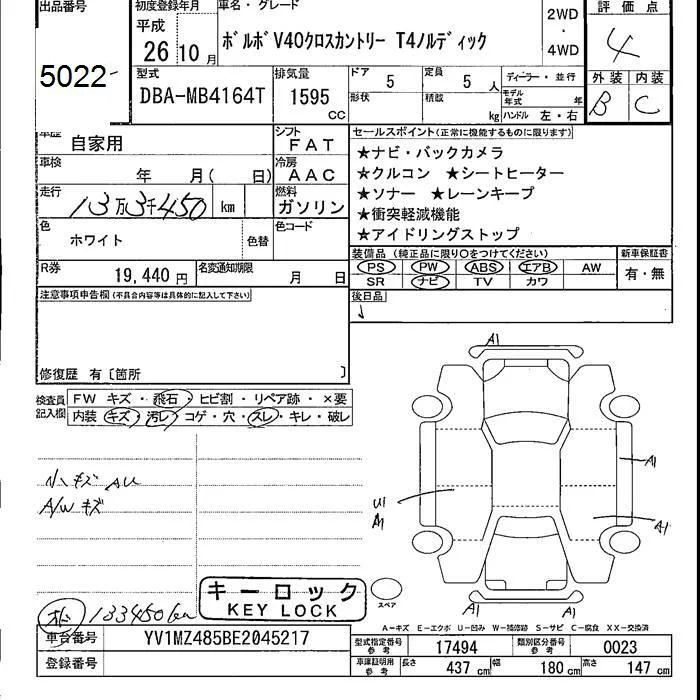 出品番号 初度登録年月 車名・グレード 評価点
平成 26 10 月 ボルボ V40クロスカントリー T4ノルディック 2WD ・ 4WD 4
5022 型式 DBA-MB4164T 排気量 1595 CC ドア 5 定員 5 人 ディーラー・並行 外装 内装
形状 積載 kg モデル年式 年 ハンドル 左・右 B C
車歴 自家用 シフト FAT セールスポイント(正常に機能するものに限ります)
車検 年 月( 日) 冷房 AAC ★ナビ・バックカメラ
★クルコン ★シートヒーター
走行 13万3千450 km 燃料 ガソリン ★ソナー ★レーンキープ
★衝突軽減機能
色 ホワイト 色替 色コード ★アイドリングストップ
R券 19,440 円 名変通知期限 月 日 装備品(純正品に限り○をつけてください) 新車保証書
PS PW ABS エアB AW 有・無
SR ナビ TV カワ
注意事項申告欄(不具合内容等は具体的に記入して下さい) 後日品
修復歴 有〔箇所 〕
検査員記入欄 FW キズ・飛石・ヒビ割・リペア跡・×要
内装 キズ・汚レ・コゲ・穴・スレ・キレ・破レ
A1
A1
小キズ AU
A/W キズ
U1
A1
A1
キーロック
KEY LOCK
スペア
A1 A1
133450km
A-キズ E-エクボ U-凹み W-補修跡 S-サビ C-腐食 XX-交換済
車台番号 YV1MZ485BE2045217 型式指定番号 参考 17494 類別区分番号 参考 0023
登録番号 車庫証明用 参考 長さ 437 cm 幅 180 cm 高さ 147 cm